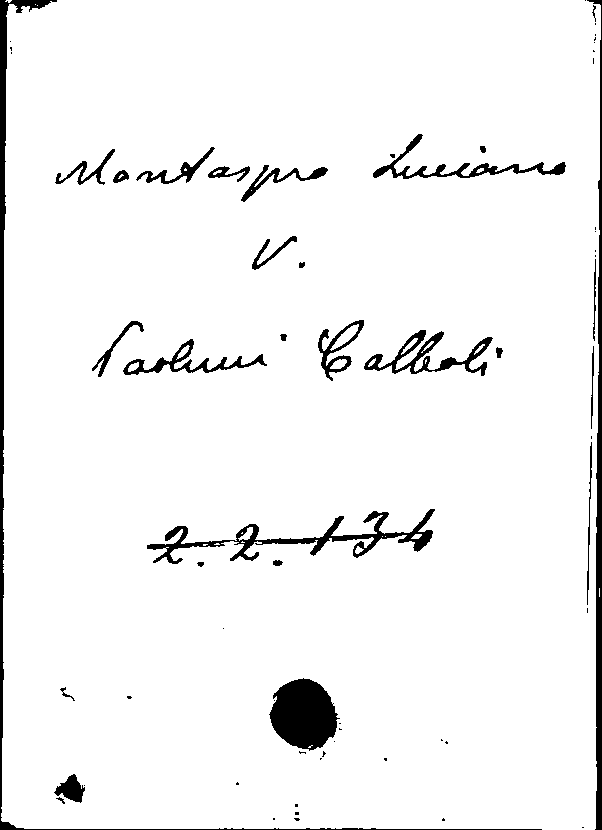 Montaspro Luciano
V.
Paolucci Calboli
2. 2. 134